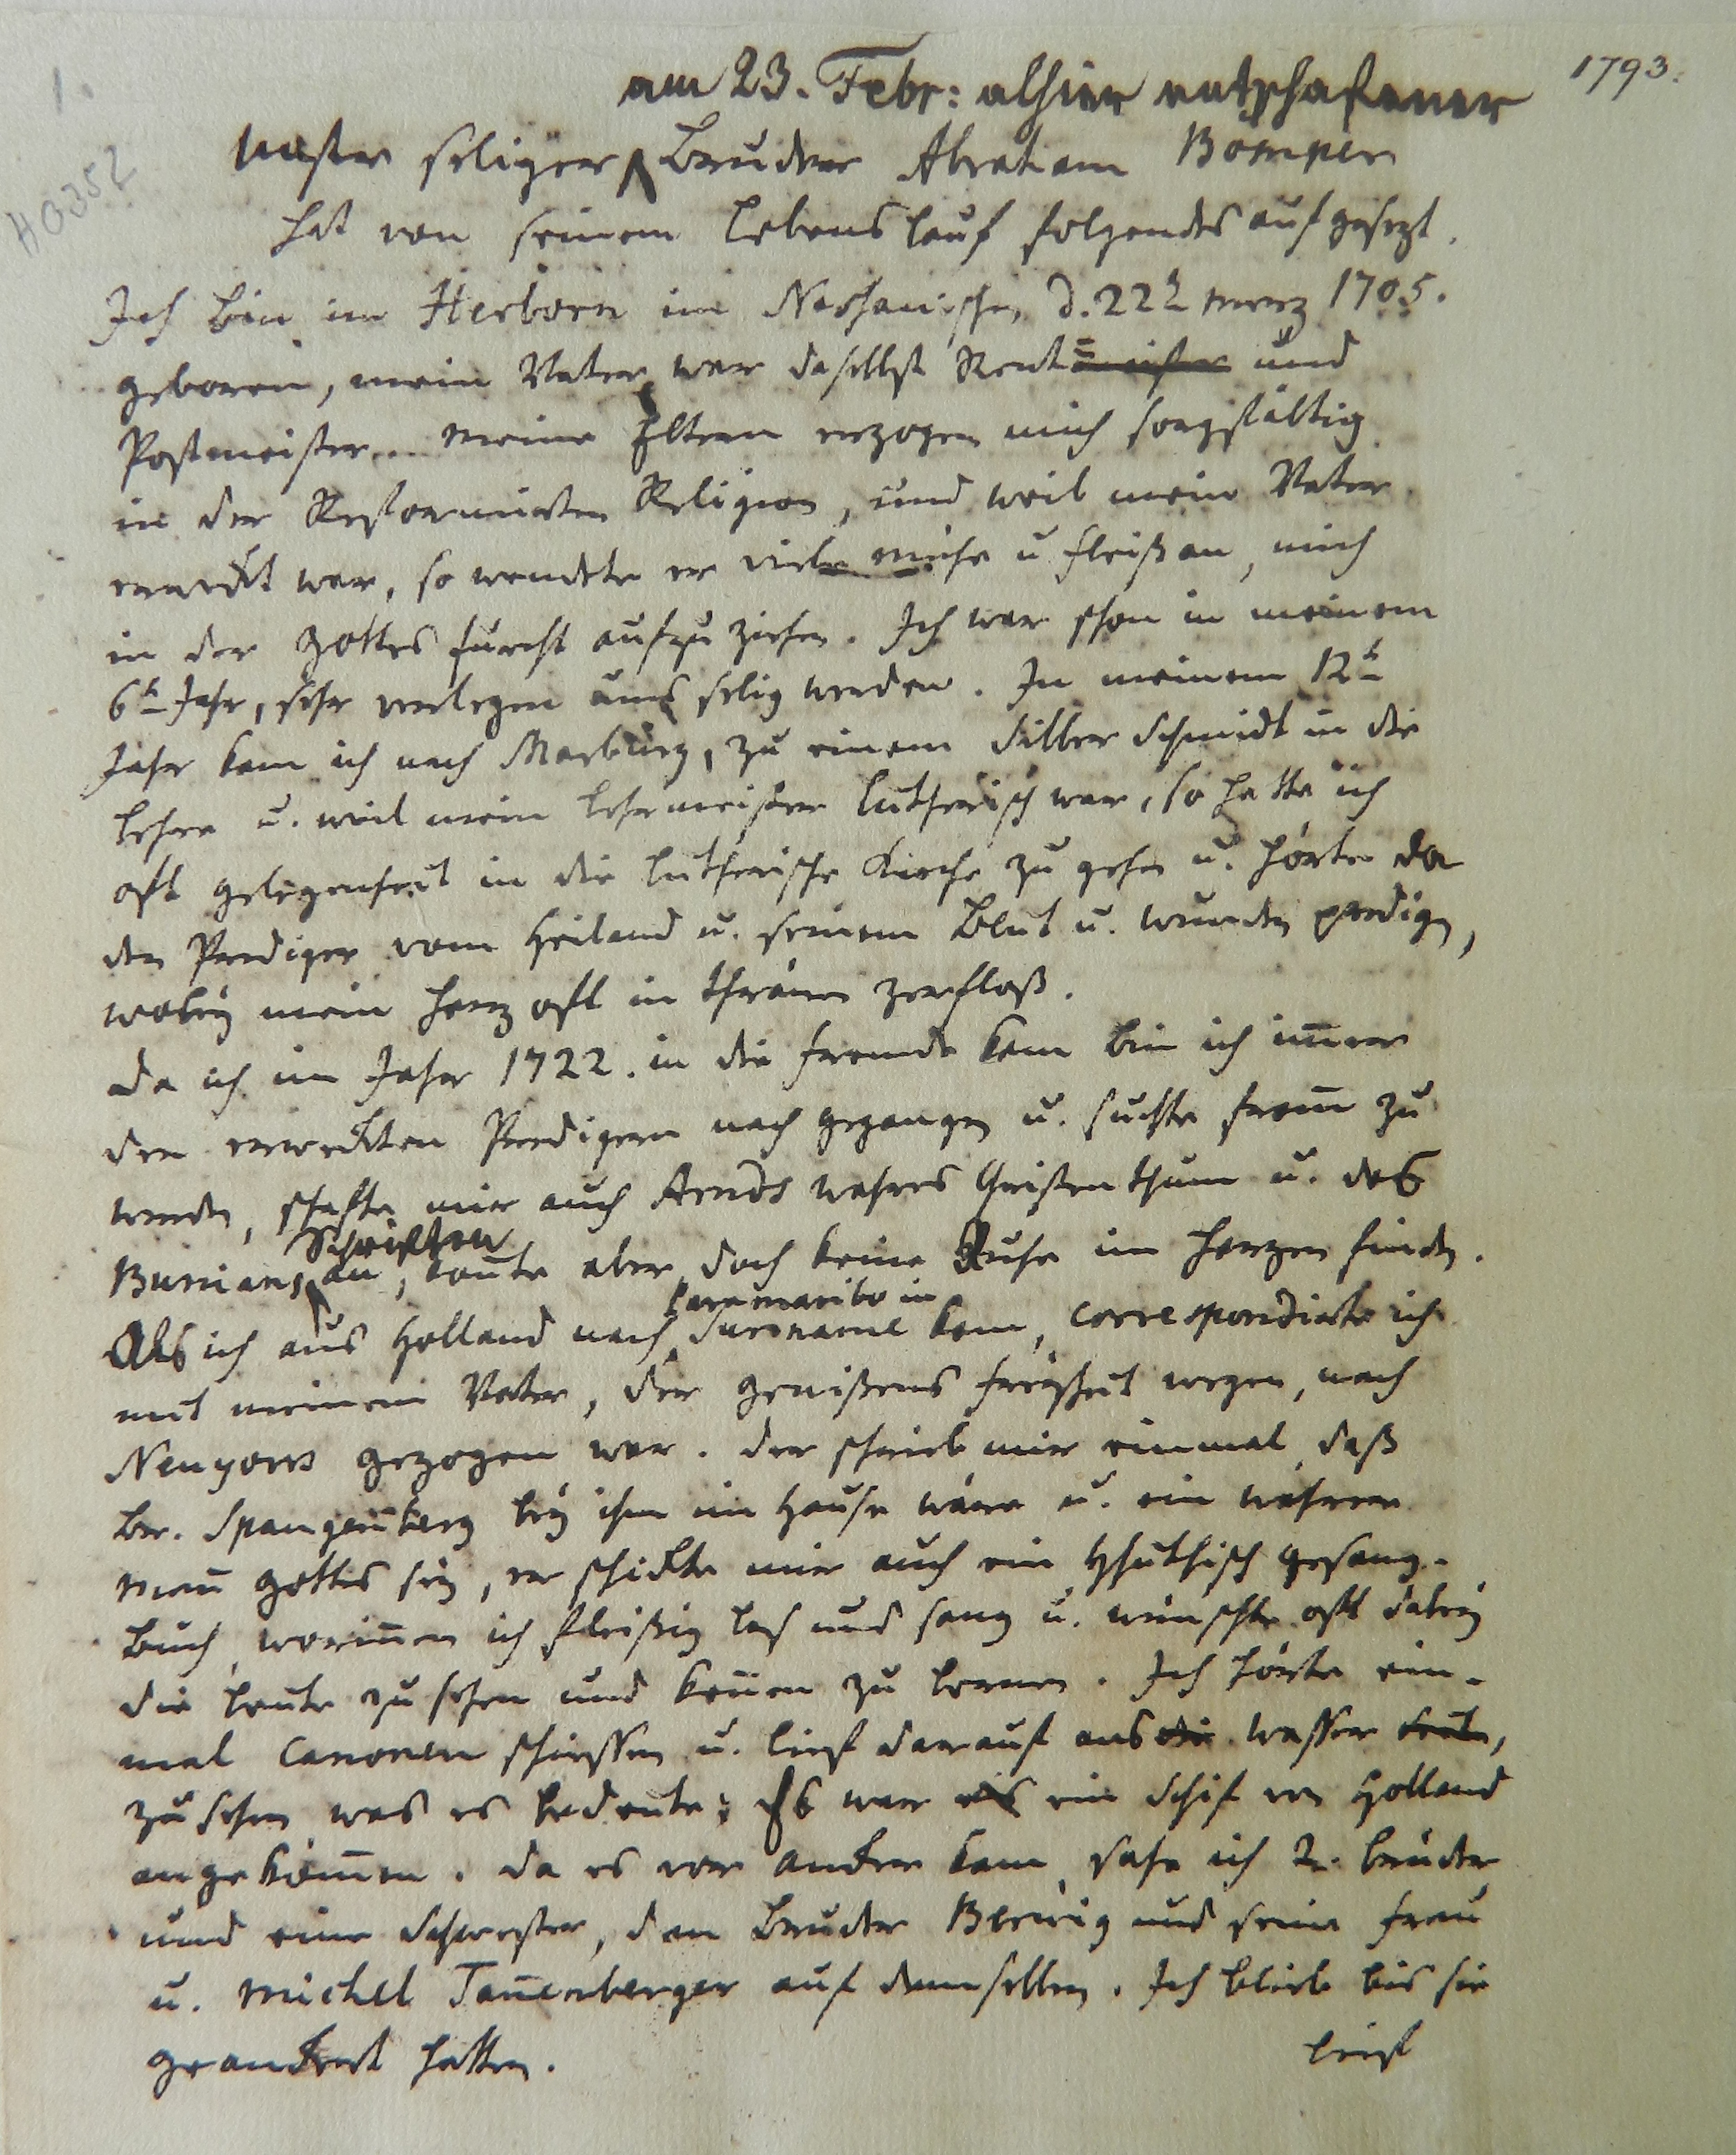 1.
1793.
H0352
am 23. Febr: alhier entschlafener
unser seliger Bruder Abraham Bömper
hat von seinem Lebenslauf folgendes aufgesezt.
Ich bin in Herborn im Nassauischen d. 22t Merz 1705.
geboren, mein Vater war daselbst Rent=meister und
Postmeister. Meine Eltern erzogen mich sorgfältig
in der Reformirten Religion, und weil mein Vater
erweckt war, so wendete er viele mühe u fleiß an, mich
in der Gottes furcht aufzu ziehen. Ich war schon in meinem
6t Jahr, sehr verlegen ums selig werden. In meinem 12t
Jahr kam ich nach Marburg, zu einem Silber Schmidt in die
Lehre u. weil mein Lehrmeister Lutherisch war, so hatte ich
oft gelegenheit in die Lutherische Kirche zu gehen u. hörte da
den Prediger vom Heiland u. seinem Blut u. Wunden predigen,
wobey mein Herz oft in thränen zerfloß.
Da ich im Jahr 1722. in die fremde kam bin ich im̅er
den erweckten Predigern nach gegangen u. suchte from̅ zu
werden, schafte mir auch Arnds wahres Christenthum u. des
Bunians Schriften an, konte aber doch keine Ruhe im Herzen finden.
Als ich aus Holland nach Paramaribo in Suriname kam, correspondirte ich
mit meinem Vater, der gewißens freyheit wegen, nach
Neuyork gezogen war. Der schrieb mir einmal, daß
Br. Spangenberg bey ihm im Hause wäre u. ein wahrer
Man̅ Gottes sey, er schickte mir auch ein Hhuthisch gesang-
Buch, worin̅en ich fleißig las und sang u. wünschte oft dabey
die Leute zu sehen und ken̅en zu lernen. Ich hörte ein-
mal Canonen schiessen u. lief darauf ans die Wasser,
zu sehen was es bedeute; Es war als ein Schif von Holland
angekom̅en. Da es vor Ancker kam, sahe ich 2. Brüder
und eine Schwester, den Bruder Berwig und seine frau
u. Michel Tan̅enberger auf demselben. Ich blieb bis sie
geanckert hatten.
lief